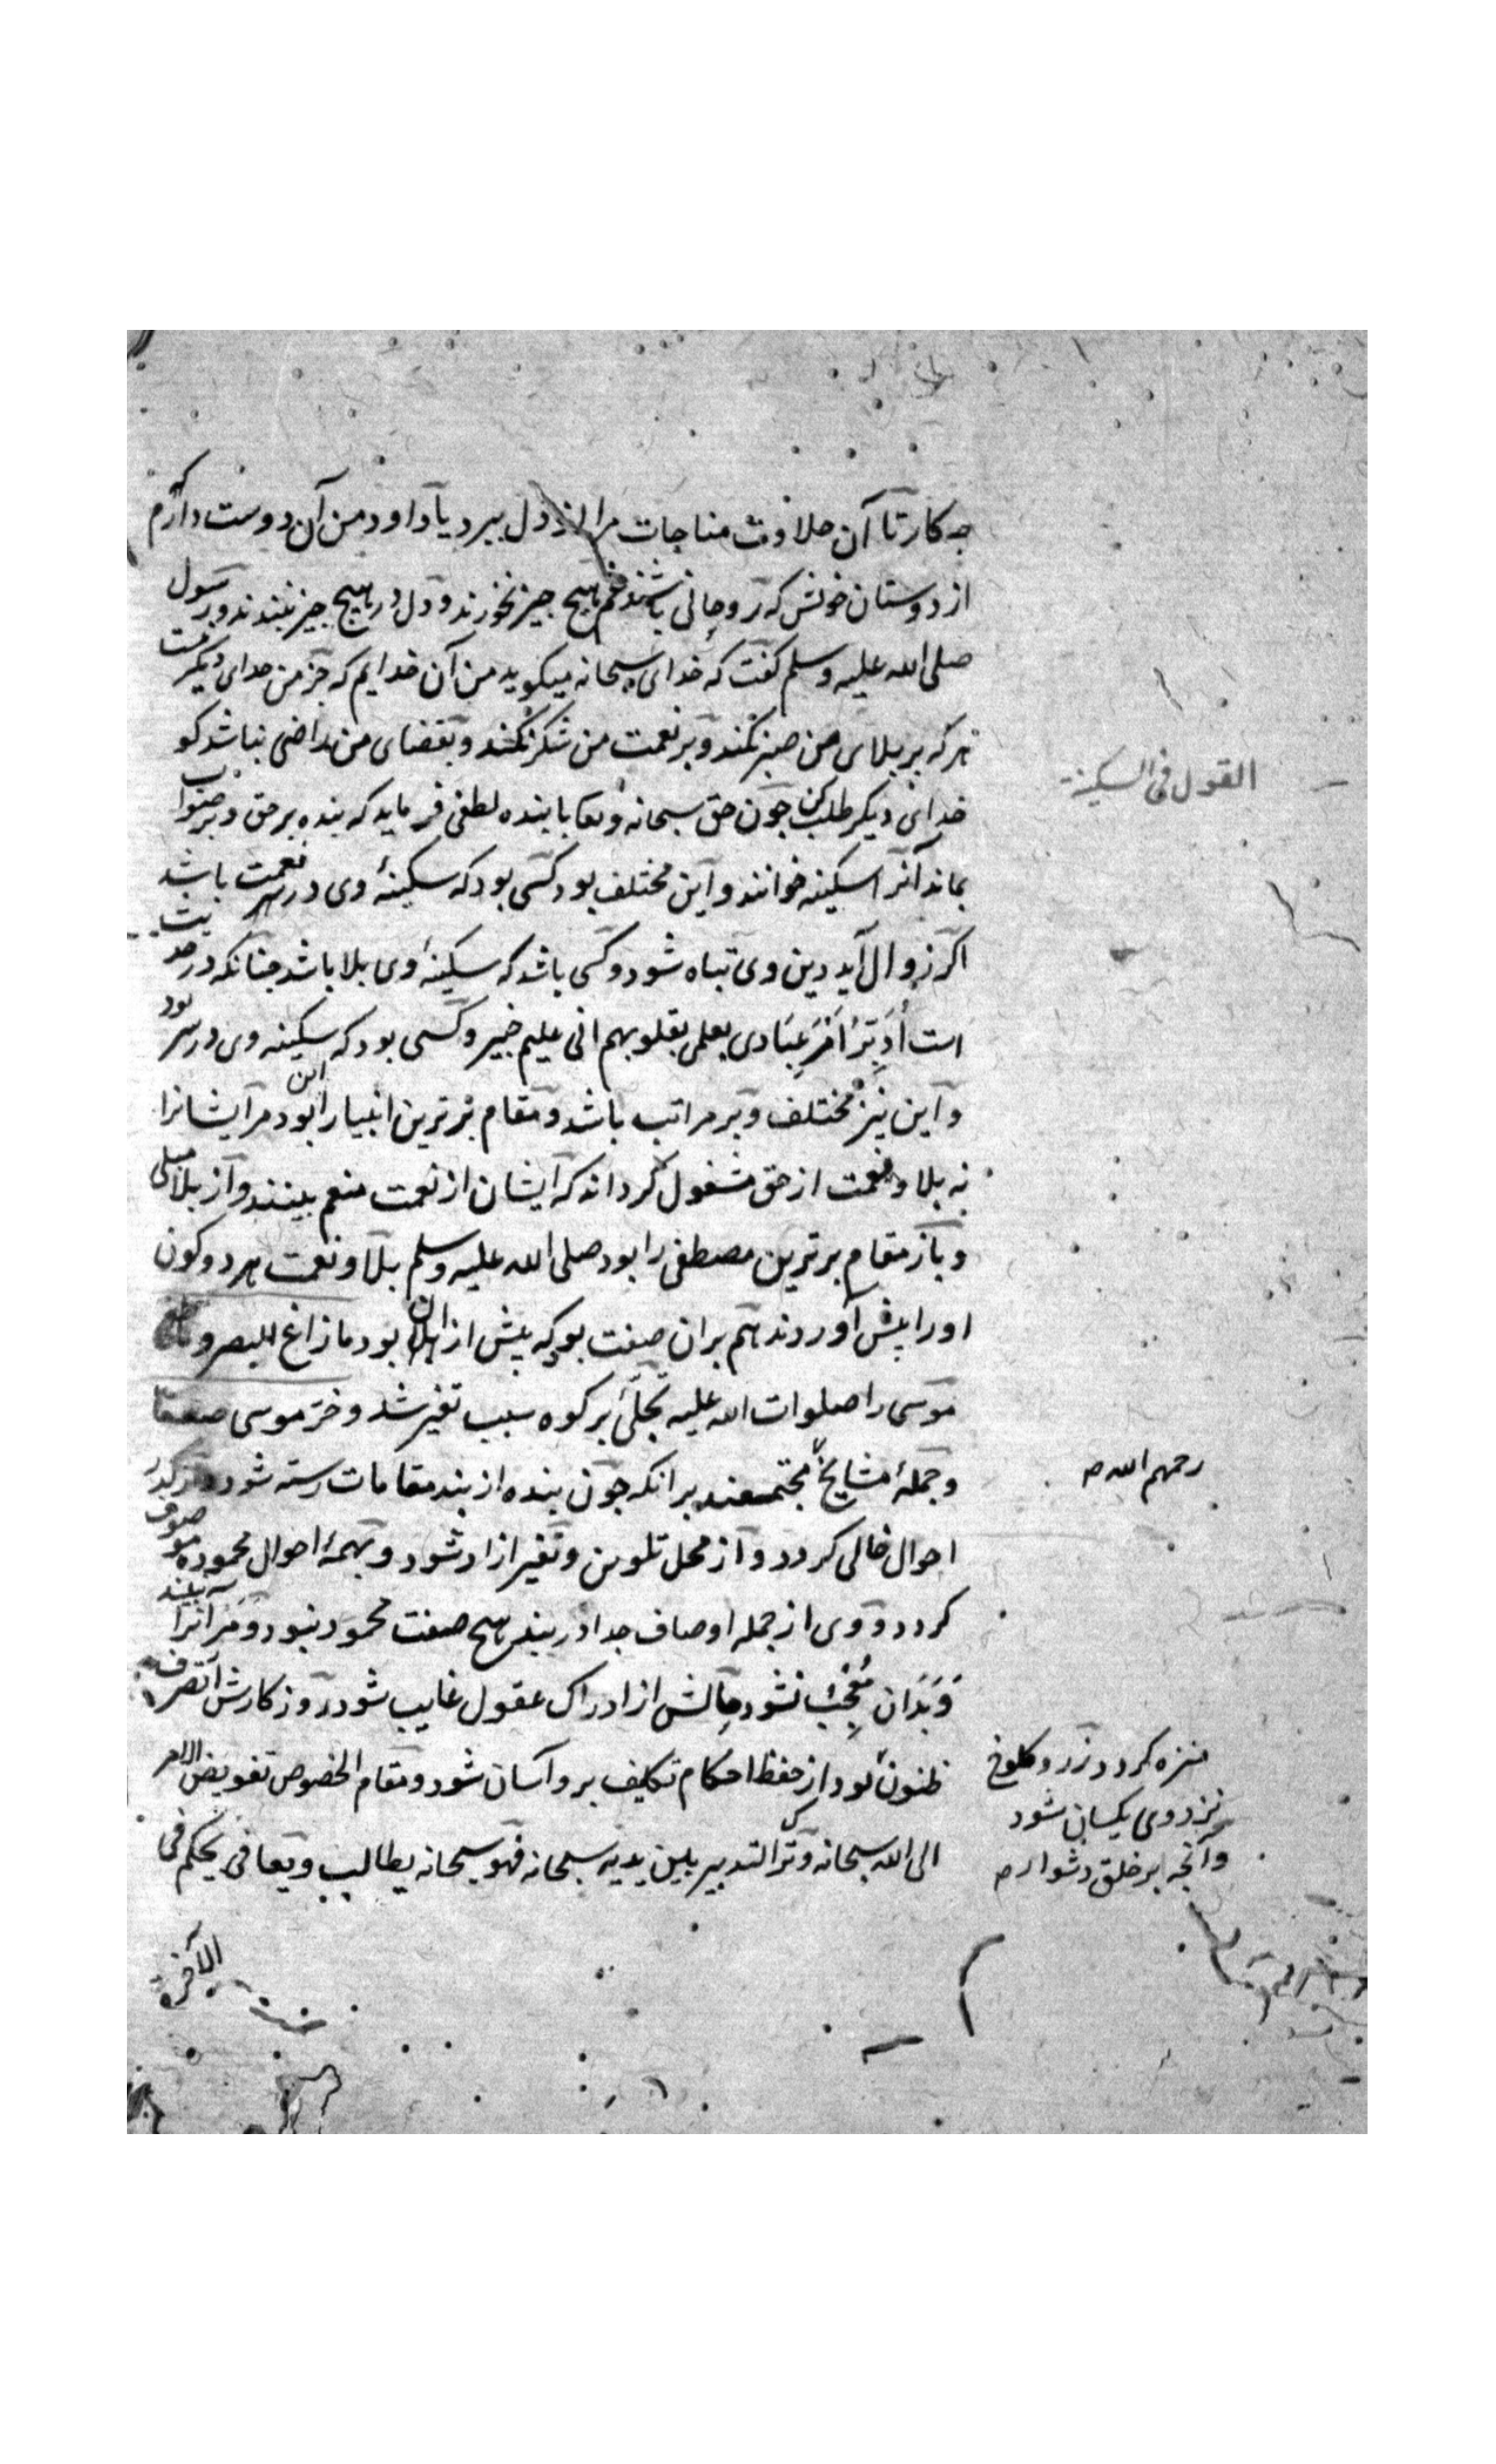 چه کار تا آن حلاوت مناجات مرا از دل ببرد یا داود من آن دوست دارم
از دوستان خویش که روحانی باشند غم هیچ چیز نخورند و دل در هیچ چیز نبندند و رسول
صلی الله علیه وسلم کفت که خدای سبحانه میکوید من آن خدایم که جز من خدای دیکر نیست
هر که بر بلای من صبر نکند و بر نعمت من شکر نکند و بقضای من راضی نباشد کو
خدائی دیکر طلب کن چون حق سبحانه و تعا با بنده لطفی فرماید که بنده بر حق و بر صواب
بماند آنرا سکینه خوانند و این مختلف بود کسی بود که سکینهٔ وی در نعمت باشد
اکر زوال آید دین وی تباه شود و کسی باشد که سکینهٔ وی بلا باشد چنانکه در حدیث
است أدبر أمر عبادی بعلمی بقلوبهم انی علیم خبیر و کسی بود که سکینه وی در سر بود
و این نیز مختلف و بر مراتب باشد و مقام برترین انبیا را بود مر ایشانرا
نه بلا و نعمت از حق مشغول کرداند که ایشان از نعمت منعم بینند و از بلا مبلی
و باز مقام برترین مصطفی را بود صلی الله علیه وسلم بلا و نعمت هر دو کون
او را پیش آوردند هم بران صفت بود که پیش از ان بود ما زاغ البصر و ما طغی
موسی را صلوات الله علیه تجلی بر کوه سبب تغیر شد و خر موسی صعقا
و جملهٔ مشایخ مجتمعند بر انکه چون بنده از بند مقامات رسته شود و از کدر
احوال خالی کردد و از محل تلوین و تغیر ازاد شود و بهمهٔ احوال محموده موصوف
کردد و وی از جمله اوصاف جدا در بند هیچ صفت محمود نبود و مر آنرا نبیند
و بدان معجب نشود حالش از ادراک عقول غایب شود روز کارش از تصرف
ظنون بود از حفظ احکام تکلیف برو آسان شود و مقام الخصوص تفویض الامر
الی الله سبحانه و ترک التدبیر بین یدیه سبحانه فهو سبحانه یطالب و یعافی یحکم فی
الآخرة
القول فی السکینة
رحمهم الله
منزه کردد زر و کلوخ
نزد وی یکسان شود
و آنچه بر خلق دشوار